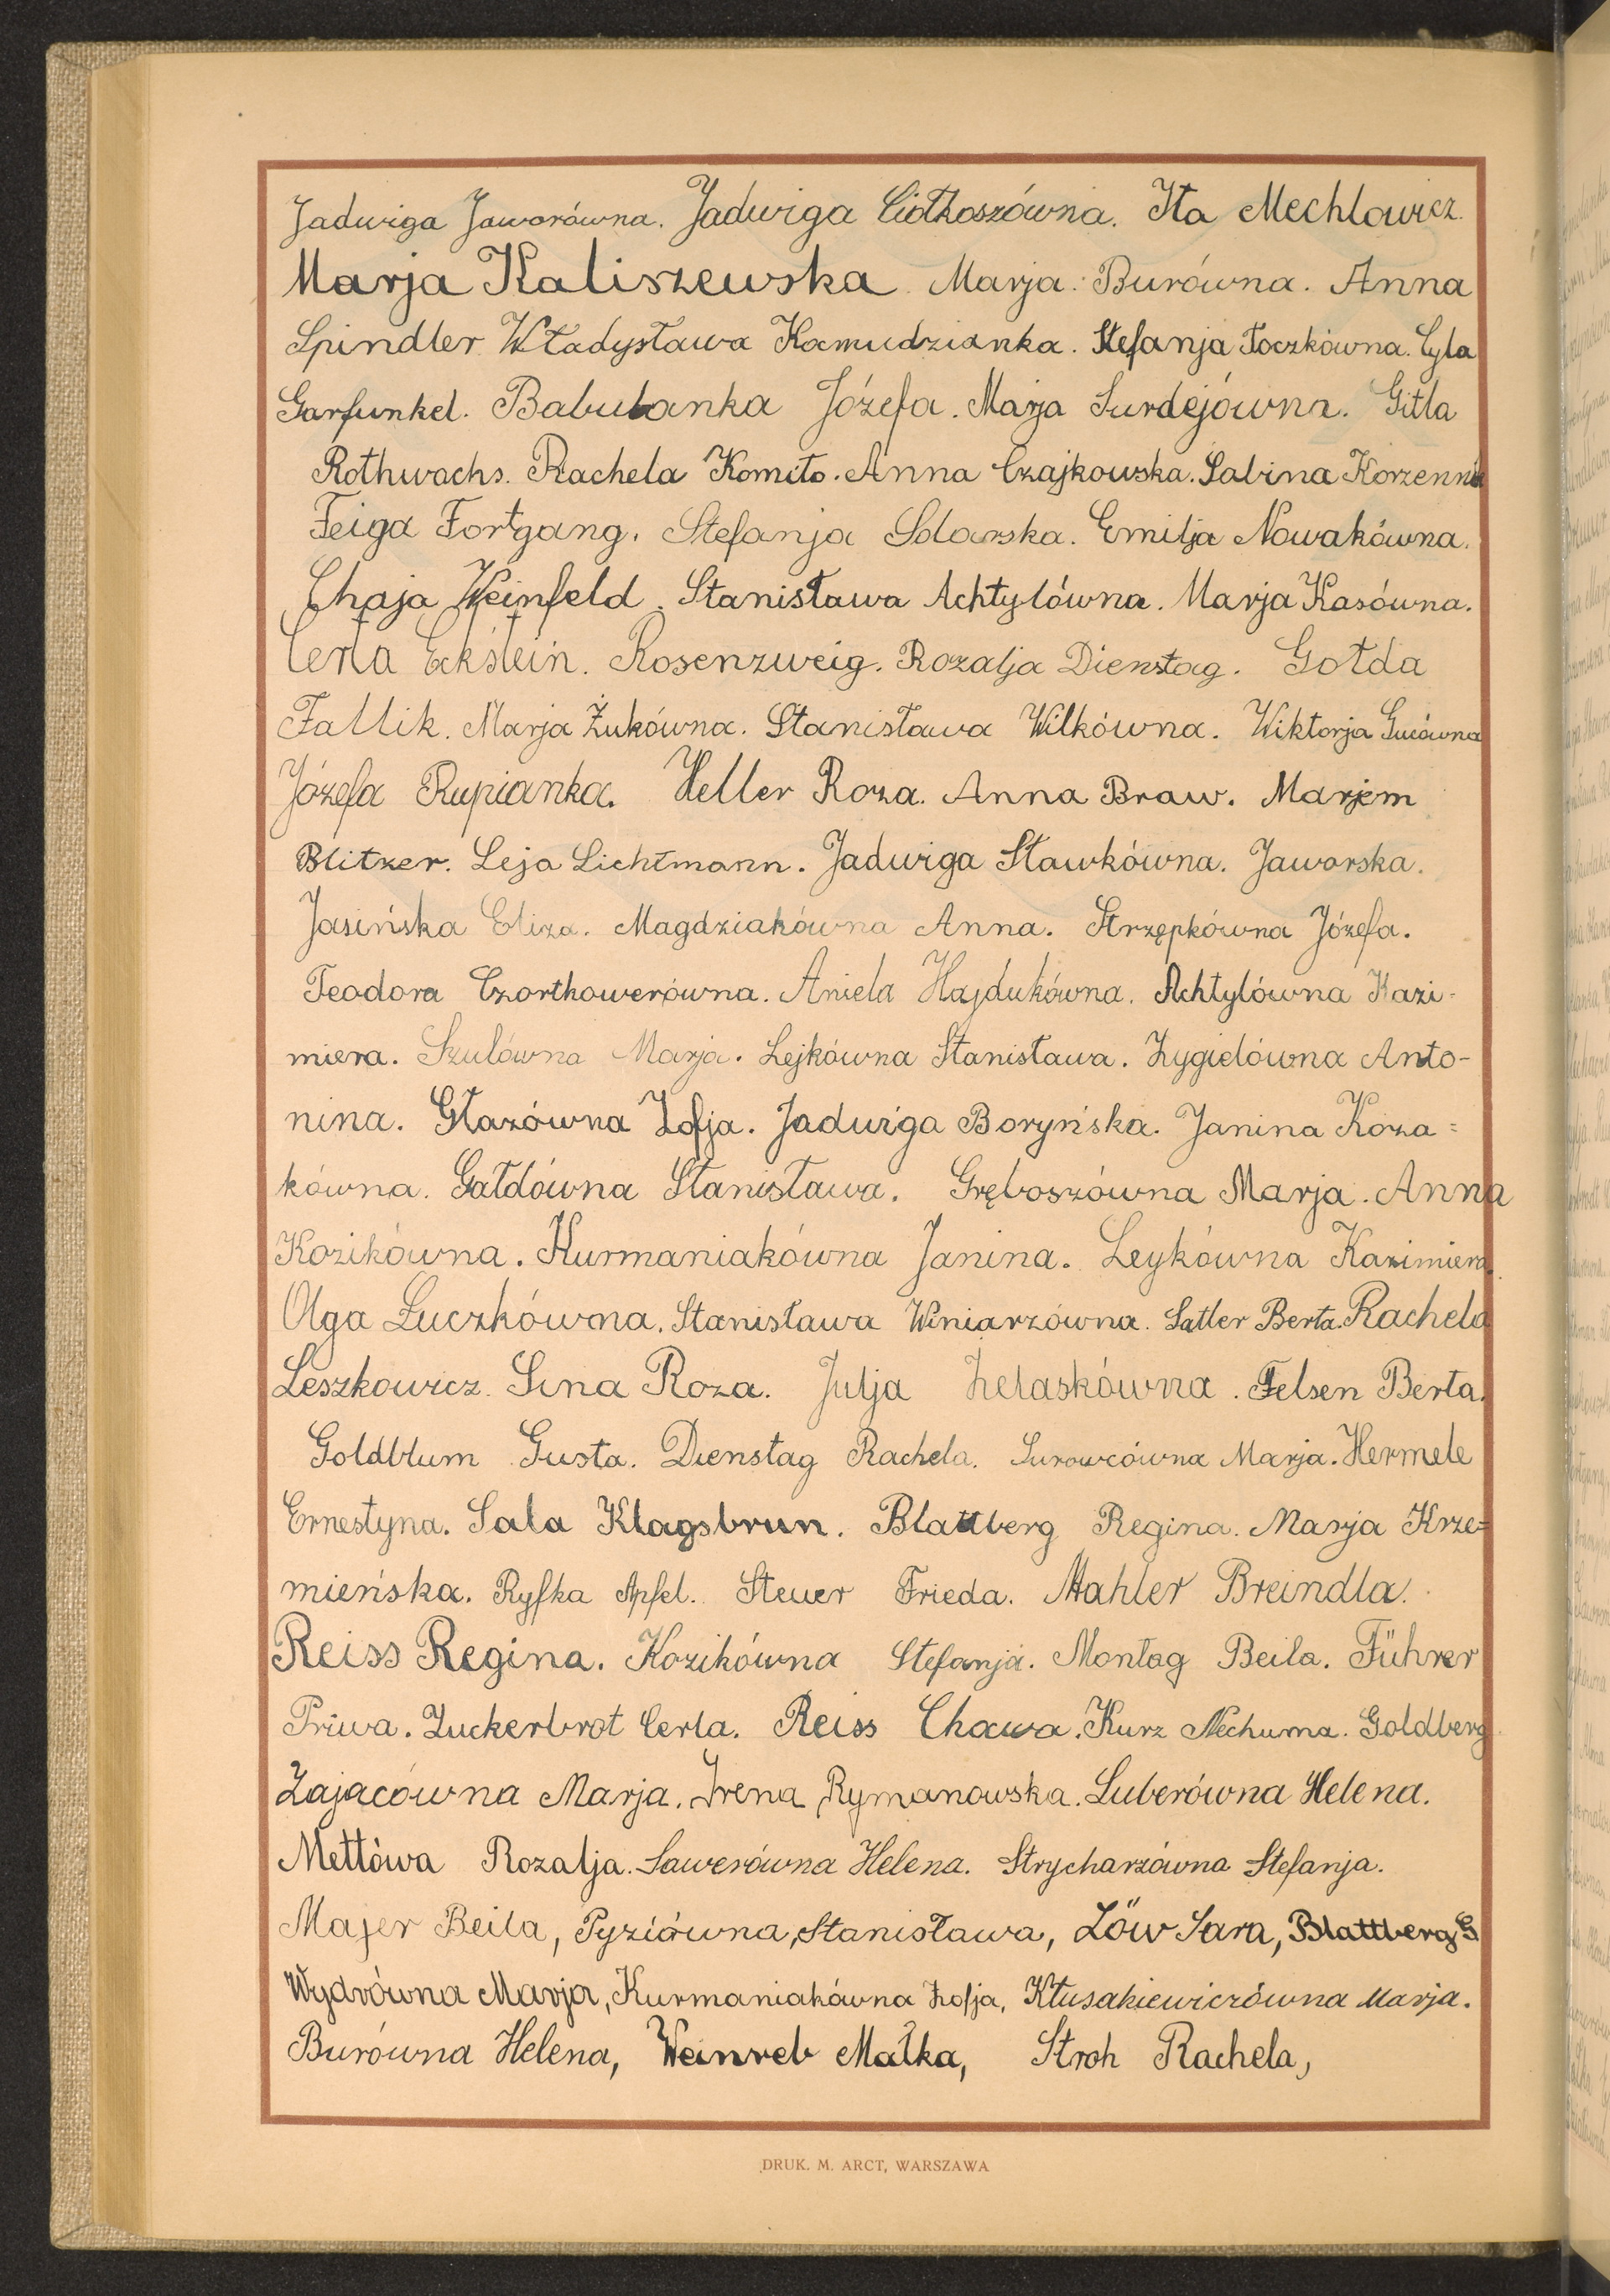 Jadwiga Jaworówna. Jadwiga Ciołkoszówna. Ita Mechlowicz.
Marja Kaliszewska. Marja Burówna. Anna
Spindler Władysława Kamudzianka. Stefanja Toczkówna. Cyla
Garfunkel. Babulanka Józefa. Marja Surdejówna. Gitla
Rothwachs. Rachela Komito. Anna Czajkowska. Sabina Korzennik
Feiga Fortgang. Stefanja Solarska. Emilja Nowakówna.
Chaja Weinfeld. Stanisława Achtylówna. Marja Kasówna.
Cerla Eckstein. Rosenzweig. Rozalja Dienstag. Gołda
Fallik. Marja Żukówna. Stanisława Wilkówna. Wiktorja Gucówna
Józefa Rupianka. Heller Roza. Anna Braw. Marjem
Blitzer. Leja Lichtmann. Jadwiga Sławkówna. Jaworska.
Jasińska Eliza. Magdziakówna Anna. Strzępkówna Józefa.
Teodora Czorthowerówna. Aniela Hajdukówna. Achtylówna Kazi-
miera. Szulówna Marja. Lejkówna Stanisława. Zygielówna Anto-
nina. Głazówna Zofja. Jadwiga Boryńska. Janina Koza=
kówna. Gałdówna Stanisława. Gręboszówna Marja. Anna
Kozikówna. Kurmaniakówna Janina. Leykówna Kazimiera.
Olga Łuczkówna. Stanisława Winiarzówna. Satler Berta. Rachela
Leszkowicz. Sina Roza. Julja Żelaskówna. Felsen Berta.
Goldblum Gusta. Dienstag Rachela. Surowcówna Marja. Hermele
Ernestyna. Sala Klagsbrun. Blattberg Regina. Marja Krze=
mieńska. Ryfka Apfel. Steuer Frieda. Mahler Breindla.
Reiss Regina. Kozikówna Stefanja. Montag Beila. Führer
Priwa. Zuckerbrot Cerla. Reiss Chawa. Kurz Nechuma. Goldberg
Zajacówna Marja. Irena Rymanowska. Luberówna Helena.
Mettówa Rozalja. Sawerówna Helena. Strycharzówna Stefanja.
Majer Beila, Pyziówna, Stanisława, Löw Sara, Blattberg G
Wydrówna Marja, Kurmaniakówna Zofja, Kłusakiewiczówna Marja.
Burówna Helena, Weinreb Małka, Stroh Rachela,
DRUK. M. ARCT, WARSZAWA